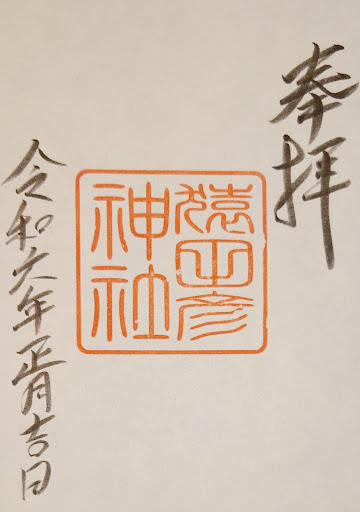 奉拝
猿田彦
神社
令和六年正月吉日